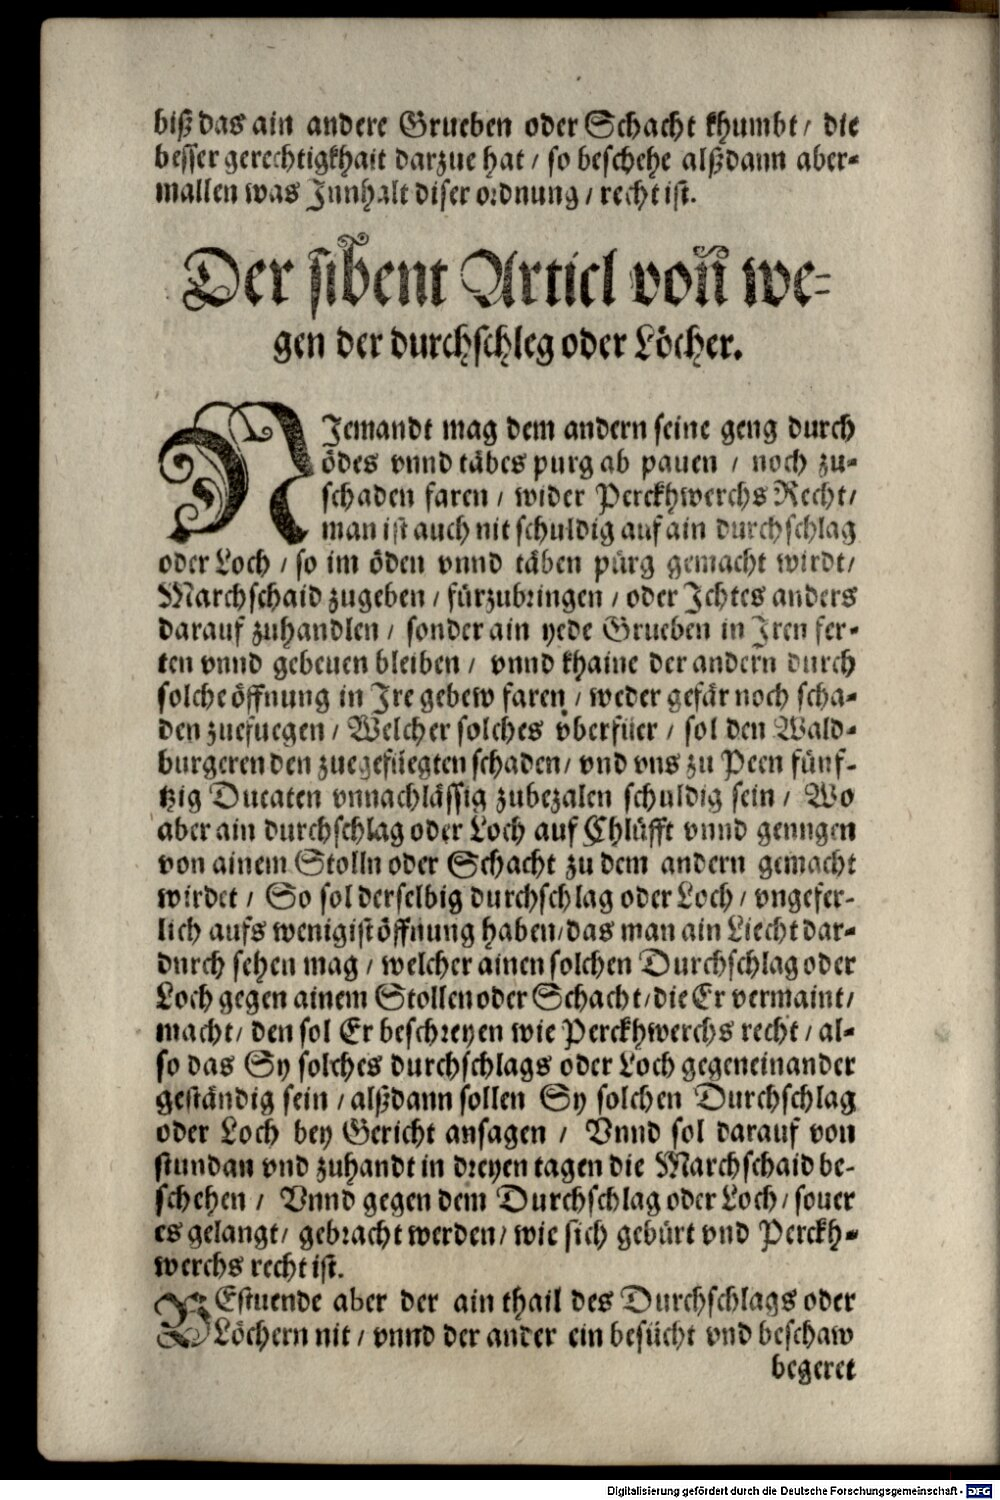 biß das ain andere Grueben oder Schacht khumbt / die
besser gerechtigkhait darzue hat / so beschehe alßdann aber-
mallen was Innhalt diser ordnung / recht ist.
Der sibent Articl von̄ we-
gen der durchschleg oder Löcher.
NJemandt mag dem andern seine geng durch
ödes vnnd täbes purg ab pauen / noch zu-
schaden faren / wider Perckhwerchs Recht /
man ist auch nit schuldig auf ain durchschlag
oder Loch / so im öden vnnd täben pürg gemacht wirdt /
Marchschaid zugeben / fürzubringen / oder Ichtes anders
darauf zuhandlen / sonder ain yede Grueben in Iren fer-
ten vnnd gebeuen bleiben / vnnd khaine der andern durch
solche öffnung in Ire gebew faren / weder gefär noch scha-
den zuefuegen / Welcher solches vberfüer / sol den Wald-
burgeren den zuegefüegten schaden / vnd vns zu Peen fünf-
tzig Ducaten vnnachlässig zubezalen schuldig sein / Wo
aber ain durchschlag oder Loch auf Chlüfft vnnd genngen
von ainem Stolln oder Schacht zu dem andern gemacht
wirdet / So sol derselbig durchschlag oder Loch / vngefer-
lich aufs wenigist öffnung haben / das man ain Liecht dar-
durch sehen mag / welcher ainen solchen Durchschlag oder
Loch gegen ainem Stollen oder Schacht / die Er vermaint /
macht / den sol Er beschreyen wie Perckhwerchs recht / al-
so das Sy solches durchschlags oder Loch gegeneinander
geständig sein / alßdann sollen Sy solchen Durchschlag
oder Loch bey Gericht ansagen / Vnnd sol darauf von
stundan vnd zuhandt in dreyen tagen die Marchschaid be-
schehen / Vnnd gegen dem Durchschlag oder Loch / souer
es gelangt / gebracht werden / wie sich gebürt vnd Perckh-
werchs recht ist.
BEstuende aber der ain thail des Durchschlags oder
Löchern nit / vnnd der ander ein besücht vnd beschaw
begeret
Digitalisierung gefördert durch die Deutsche Forschungsgemeinschaft - DFG